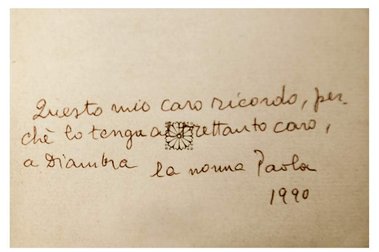 Questo mio caro ricordo, per-
chè lo tenga altrettanto caro,
a Diambra la nonna Paola
1990